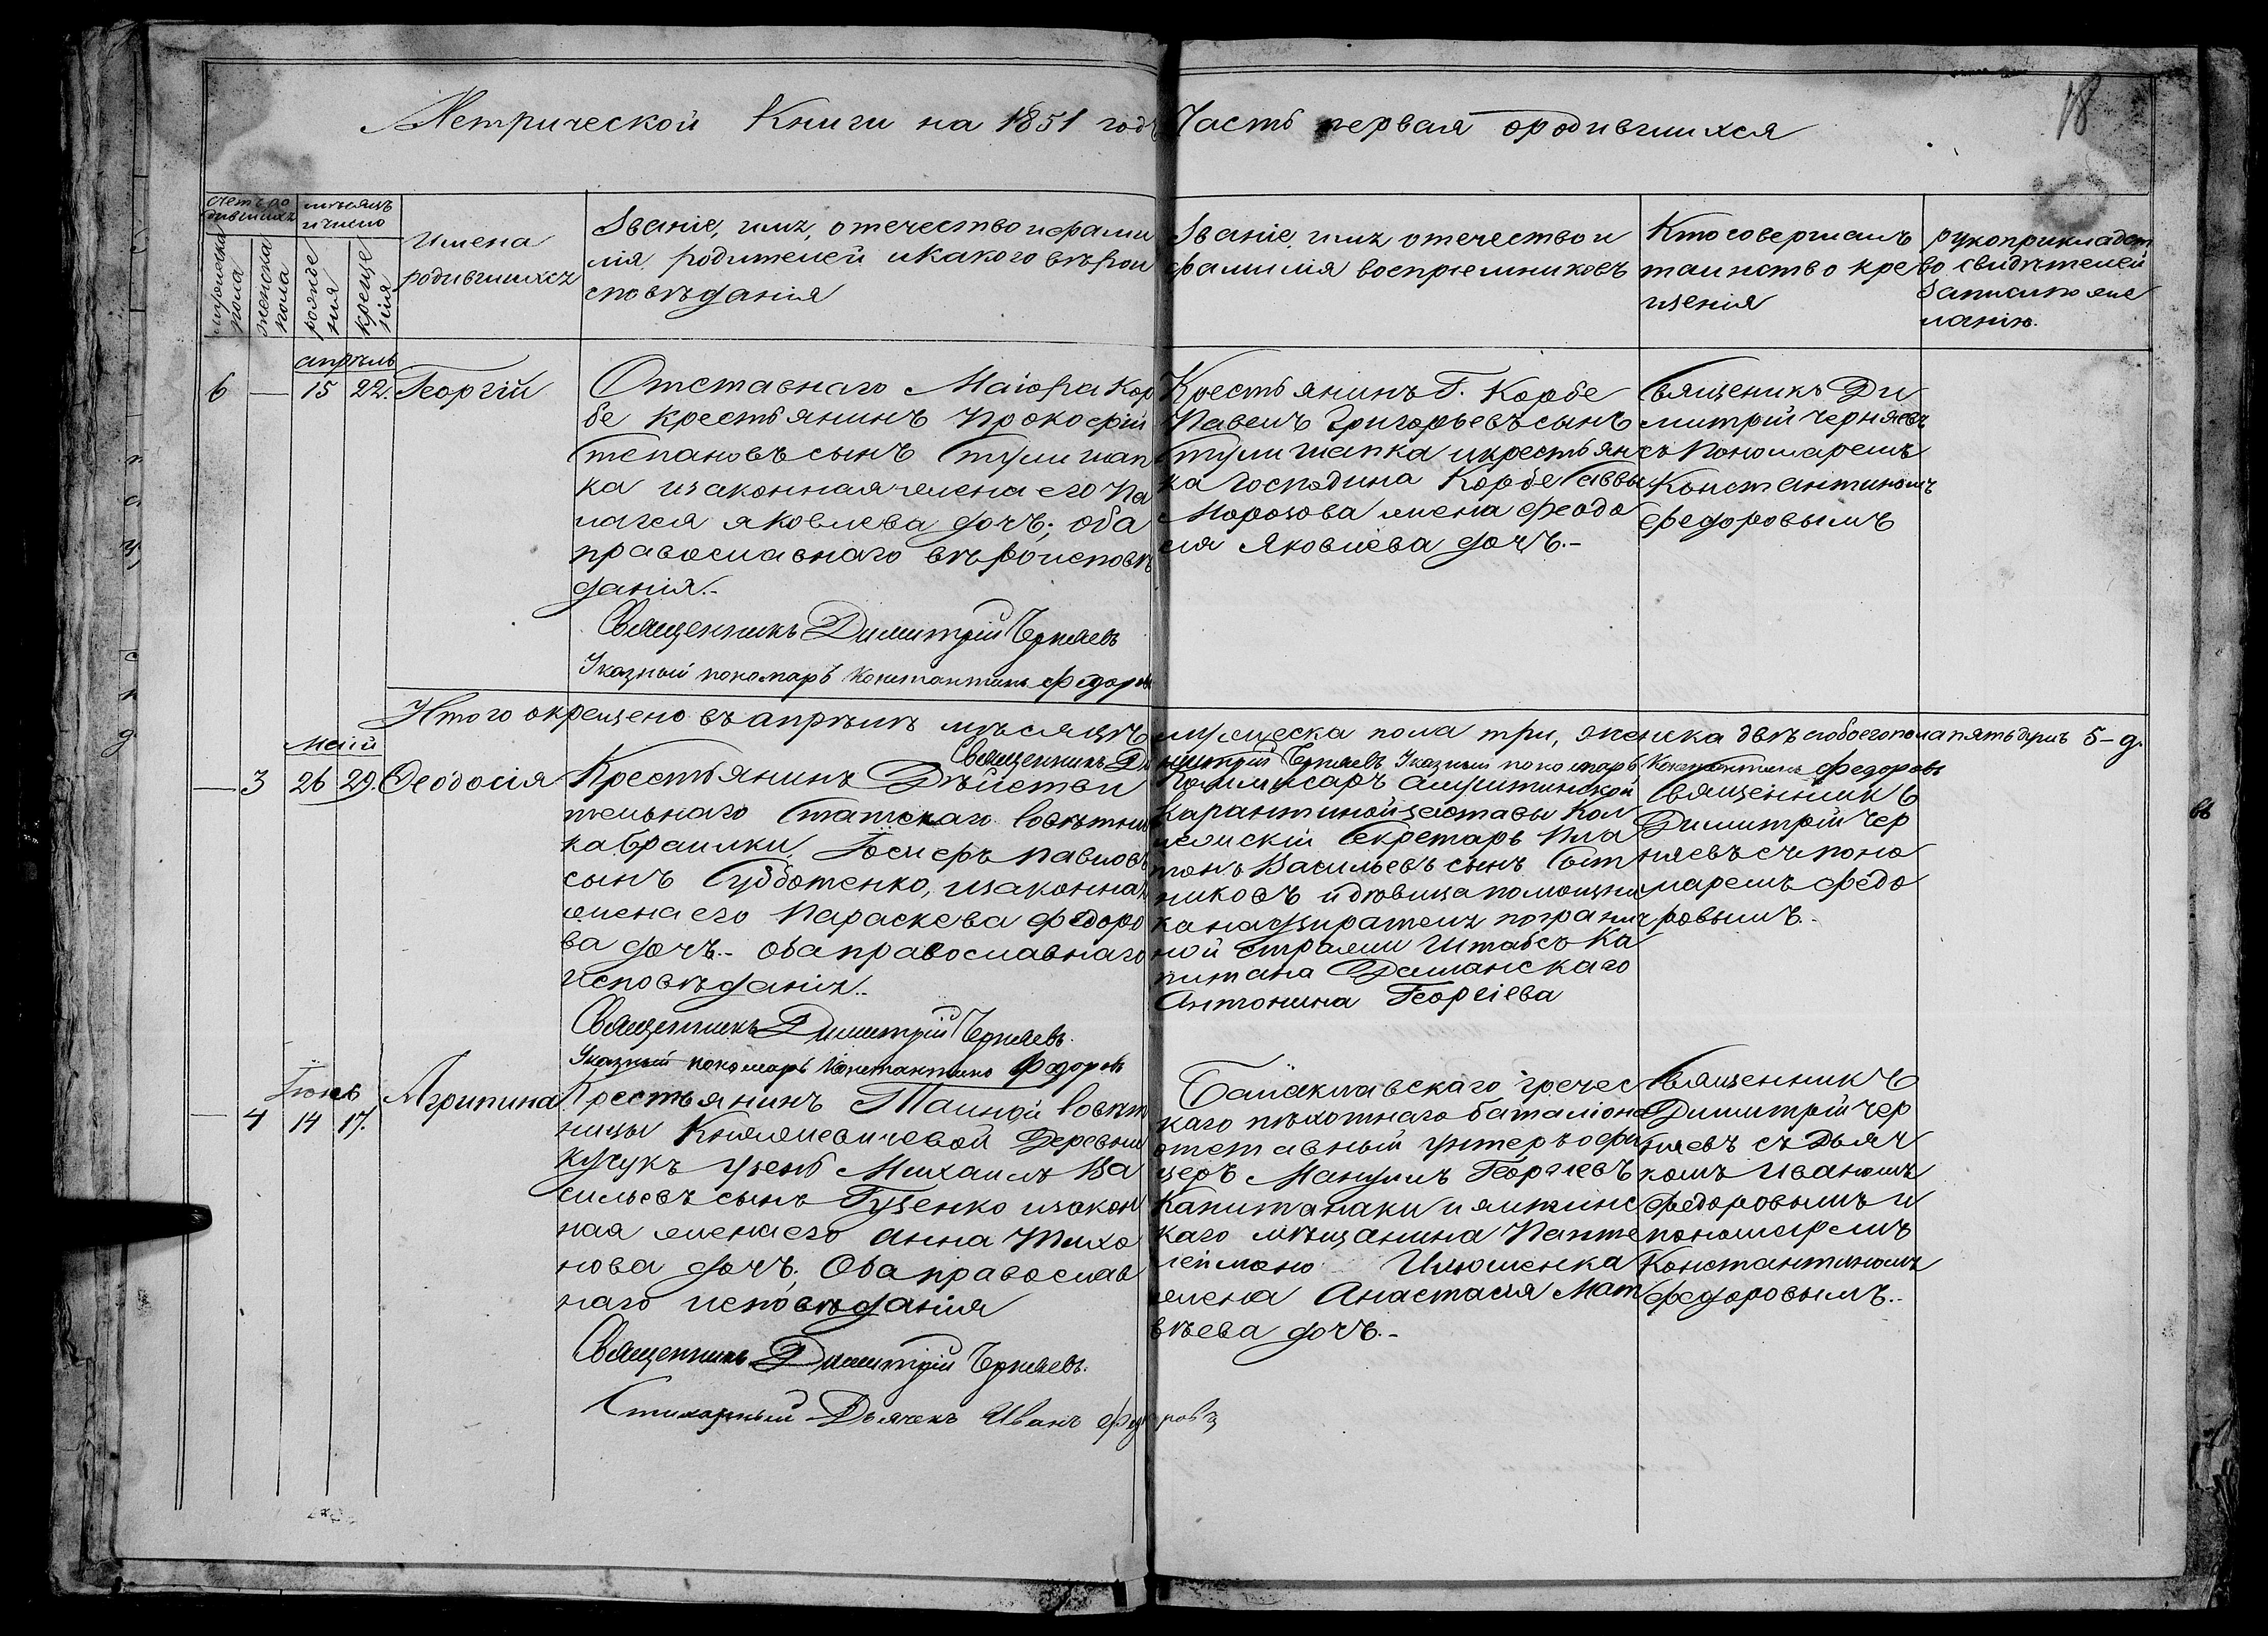 Метрической Книги на 1851 годъ Часть первая ородившихся
18
счетъ ро
дившихъ
мѣсяцъ
и число
мужеска
пола
женска
пола
рожде
ния
креще
нія
Имена
родившихся
Званіе, имя, отечество и фами
лія родителей и какого вѣрои
сповѣданія
Званіе, имя отечество и
фамилія воспріемниковъ
Кто совершалъ
таинство кре
щенія
рукоприкладст
во свидѣтелей
записи по же
ланію.
апрѣль
6 — 15 22. Георгій
Отставнаго Маіора Кор
бе крестьянинъ Прокофій
Степановъ сынъ Стулишап
ка и законная жена его Пе
лагея Яковлева дочь; оба
православнаго вѣроисповѣ
данія.-
Священникъ Димитрій Черняевъ
Указный пономарь Константинъ Федоровъ
Крестьянинъ Г. Корбе
Павелъ Григорьевъ сынъ
Стулишапка и крестьян
ка Господина Корбе Саввы
Морозова жена Феодо
сія Яковлева дочь.-
Священикъ Ди
митрій Черняевъ
съ Пономаремъ
Константиномъ
Федоровымъ
Итого окрещено въ апрѣлѣ мѣсяцѣ мужеска пола три, женска двѣ а обоего пола пять душъ 5-д.
Священникъ Димитрій Черняевъ Указный пономарь Константинъ Федоровъ
маій
— 3 26 29. Ѳеодосія
Крестьянинъ Дѣйстви
тельнаго Статскаго Совѣтни
ка Браилки, Іосифъ Павловъ
сынъ Субботенко, и законная
жена его Параскева Федоро
ва дочь.- оба православнаго
исповѣданія..
Священникъ Димитрій Черняевъ.
Указный пономарь Константинъ Федоровъ
Коммисаръ Алуштинской
Карантинной заставы Кол
лежскій Секретарь Пла
тонъ Васильевъ сынъ Сот
никовъ и дѣвица помощни
ка надзирателя погранич
ной стражи Штабсъ Ка
питана Даманскаго
Антонина Георгіева
Священникъ
Димитрій Чер
няевъ съ поно
маремъ Федо
ровымъ.-
Іюнь
— 4 14 17. Агрипина
Крестьянинъ Тайной Совѣт
ницы Княжевичевой Деревни
Кучукъ Узень Михаилъ Ва
сильевъ сынъ Гузенко и закон
ная жена его Анна Тихо
нова дочь; Оба православ
наго исповѣданія
Священникъ Димитрій Черняевъ.
Стихарный Дьячекъ Иванъ Федоровъ
Балаклавскаго гречес
каго пѣхотнаго баталіона
отставный унтеръ офи
церъ Мануилъ Георгіевъ
Капитанаки и ялтинс
каго мѣщанина Панте
леймона Илюшенка
жена Анастасія Мат
вѣева дочь.-
Священникъ
Димитрій Чер
няевъ съ Дьяч
комъ Иваномъ
Федоровымъ и
пономаремъ
Константиномъ
Федоровымъ..